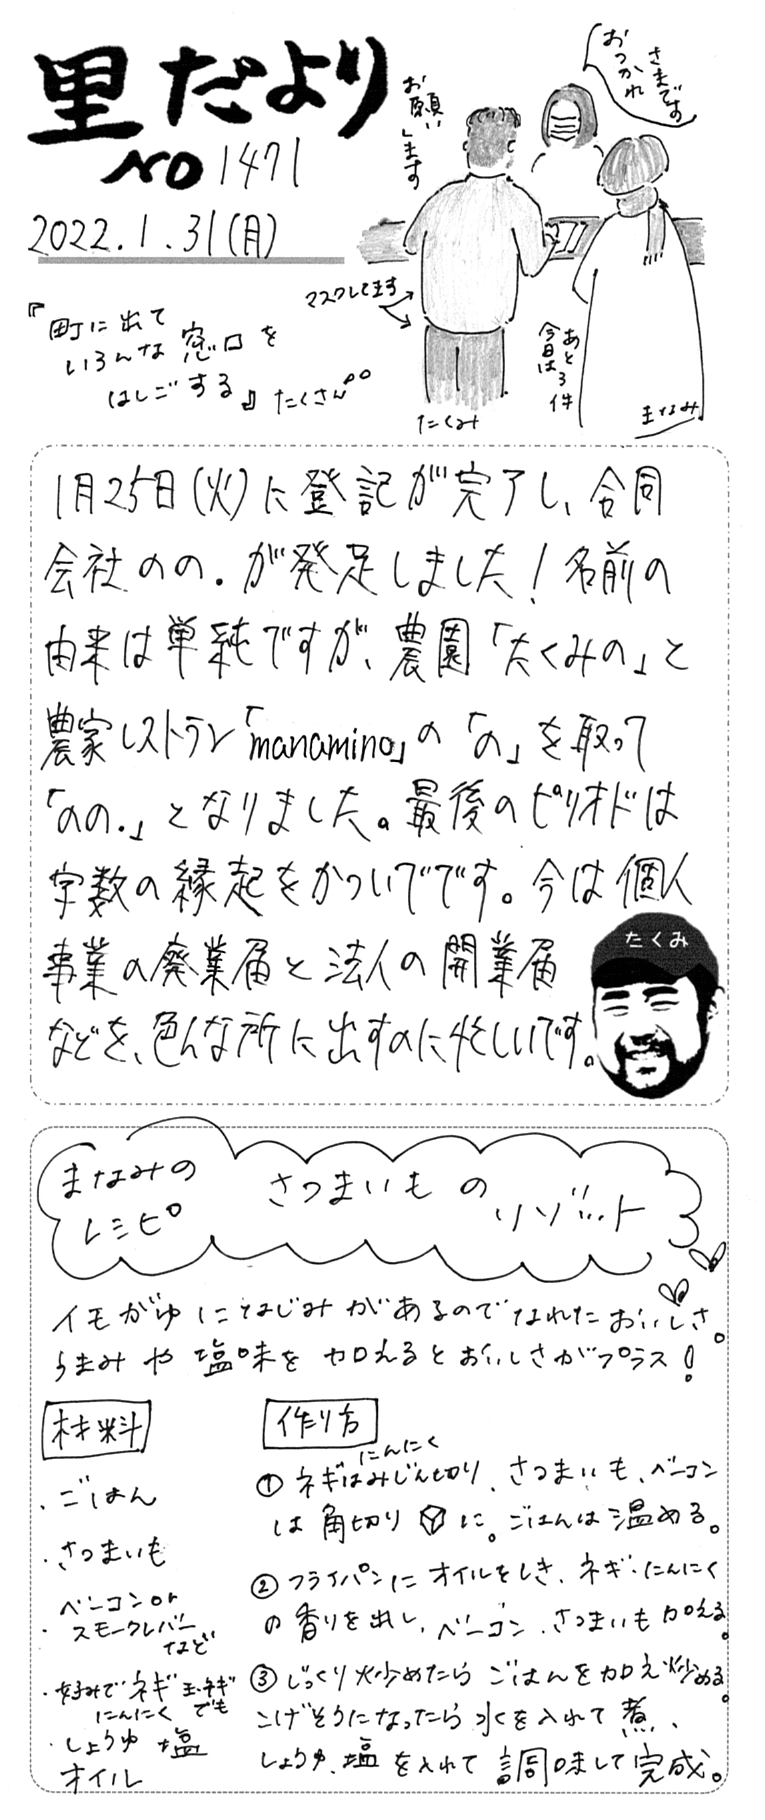 里だより
NO 1471
2022.1.31(月)
お願いします
おつかれ
さまです
マスクしてます
『町に出て
いろんな窓口を
はしごする』たくさん°°
たくみ
今日は
あと3件
まなみ
1月25日(火)に登記が完了し、合同
会社のの.が発足しました!名前の
由来は単純ですが、農園「たくみの」と
農家レストラン「manamino」の「の」を取って
「のの.」となりました。最後のピリオドは
字数の縁起をかついでです。今は個人
事業の廃業届と法人の開業届
などを、色んな所に出すのに忙しいです。
たくみ
まなみの
レシピ
さつまいもの
リゾット
イモがゆになじみがあるのでなれたおいしさ。
うまみや塩味を加えるとおいしさがプラス!
材料
・ごはん
・さつまいも
・ベーコンor
スモークレバー
など
・好みでネギ 玉ネギ
にんにく でも
・しょうゆ 塩
オイル
作り方
にんにく
①ネギはみじん切り、さつまいも、ベーコン
は角切りに。ごはんは温める。
②フライパンにオイルをしき、ネギ・にんにく
の香りを出し、ベーコン、さつまいも加える。
③じっくり火炒めたらごはんを加え炒める。
こげそうになったら水を入れて煮、
しょうゆ、塩を入れて調味して完成。